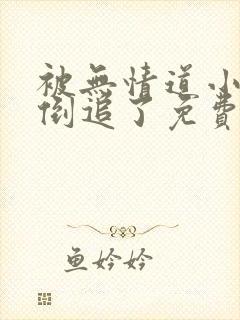 被無情道小
倒追了免費
鱼妗妗